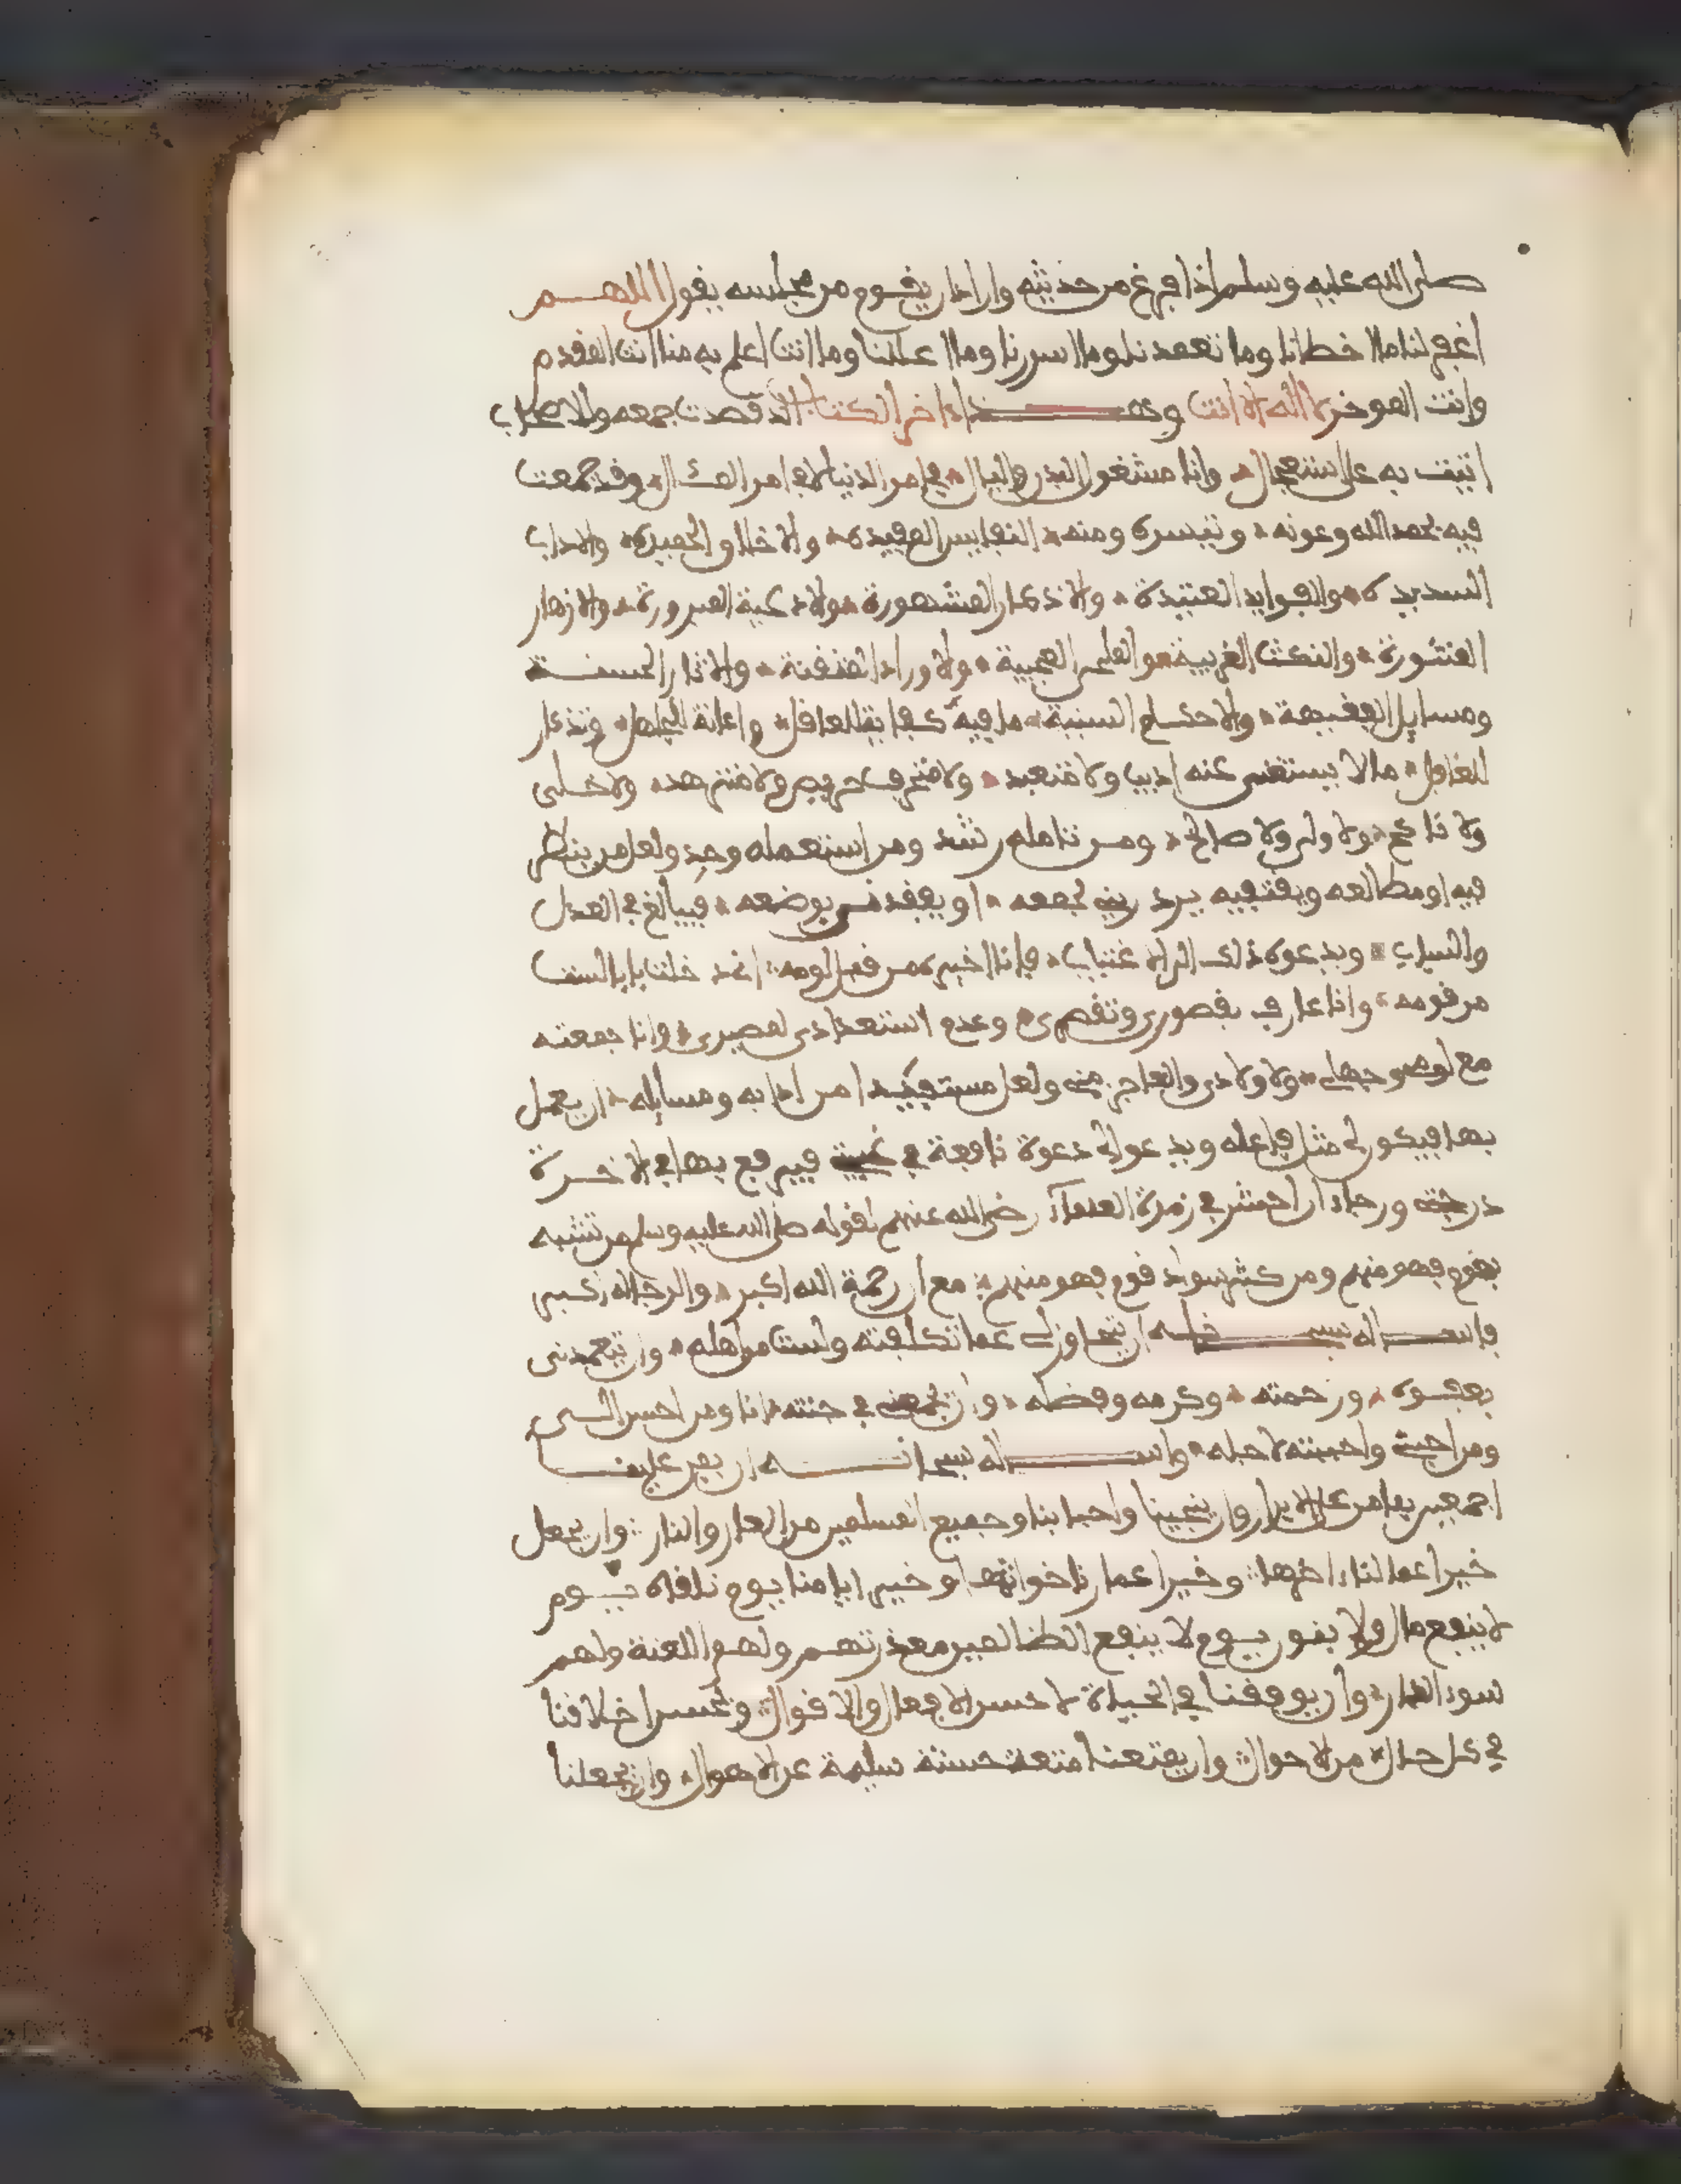 صلى الله عليه وسلم اذا فرغ من حديثه واراد ان يقوم من مجلسه يقول اللهم
اغفر لنا ما اخطانا وما تعمدنا وما اسررنا وما اعلنا وما انت اعلم به منا انت المقدم
وانت الموخر لا اله الا انت وهذا اخر الكتاب الذي قصدت جمعه
اتيت به على استعجال وانا مشغول البال في امر الدنيا وقد جمعت
فيه بحمد الله وعونه وتيسره ومنه النفايس المفيدة والاخلاق الحميدة والاداب
السديدة والفوايد العتيدة والاذكار المشهورة والادعية المبرورة والازهار
المنثورة والنكث الغريبة والملح العجيبة والاوراد المتفننة والاثار الحسنة
ومسايل الفقيهة والاحكام السنية ما فيه كفاية للعاقل واعانة للجاهل وتذكار
للغافل ما لا يستغنى عنه اديب ولا متعبد ولا متزهد ولا خلى
ولا ولي ولا صالح ومن تامله رشد ومن استعمله وجد ولعل من ينظر
فيه او مطالعه يجمعه بوضعه فيبالغ في العذل
والسباب ويدعوه ذلك الى الاغتياب فانا اخبره من قبل لومه
من قومه وانا عارف بقصورى وتقصيرى وعدم استعدادى لمصيرى وانا جمعته
ولاولادى والعاجز منى ولعل مستفيدا من ادابه ومسايله ان يعمل
بها فيكون لى مثل فاعله ويدعو لى دعوة نافعة في فيرفع بها في الاخرة
درجتى ورجاء ان احشر في زمرة العلماء رضى الله عنهم لقوله صلى الله عليه وسلم من تشبه
بقوم فهو منهم ومن كثر سواد قوم فهو منهم مع ان رحمة الله اكبر والرجا له
فاسئله سبحانه ان يتجاوز لى عما تكلفته ولست من اهله وان يتغمدنى
بعفوه ورحمته وكرمه وفضله وان يجمعنى في جنته انا ومن احسن الى
ومن احبنى واحببته لاجله واسئله سبحانه ان يمن علينا
اجمعين بما من على الابرار وان ينجينا واحبابنا وجميع المسلمين من العار والنار وان يجعل
خير اعمالنا اخرها وخير اعمارنا خواتمها وخير ايامنا يوم نلقاه يوم
لا ينفع مال ولا بنون يوم لا ينفع الظالمين معذرتهم ولهم اللعنة ولهم
سوء الدار وان يوفقنا في الحياة لاحسن الافعال والاقوال وتحسين اخلاقنا
في كل حال من الاحوال وان يمتعنا متعة حسنة سليمة عن الاهوال وان يجعلنا